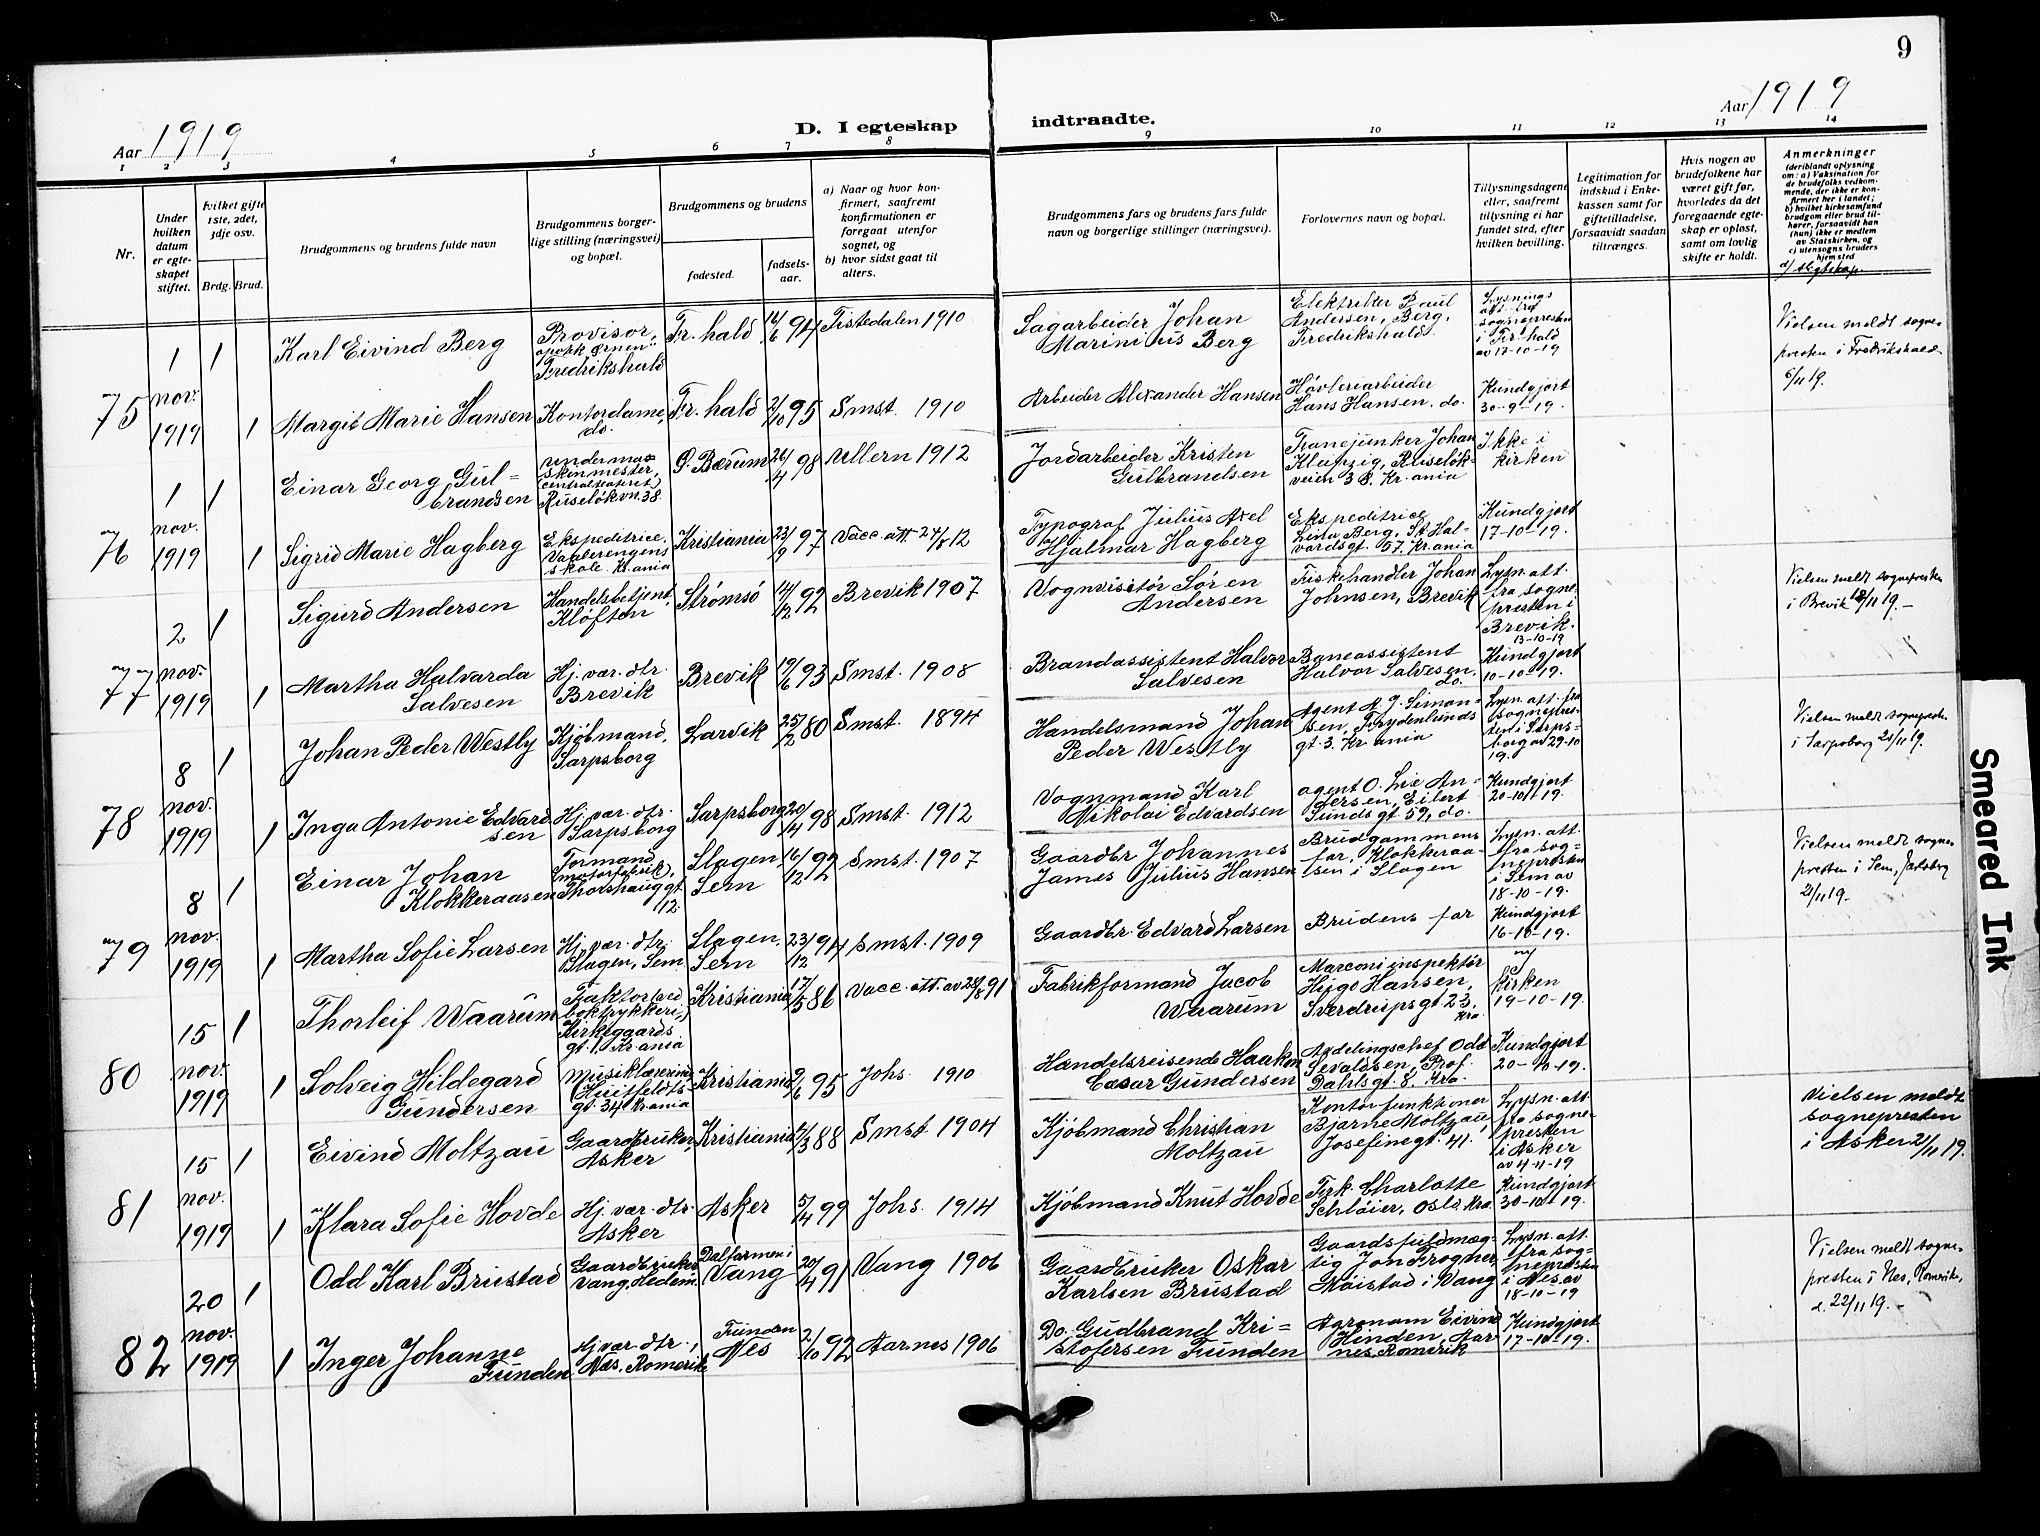 9
Aar 1919
D. I egteskap
indtraadte.
Aar 1919
1 2 3 4 5 6 7 8 9 10 11 12 13 14
Nr.
Under hvilken datum er egteskapet stiftet.
Hvilket gifte 1ste, 2det, 3dje osv.
Brdg. Brud.
Brudgommens og brudens fulde navn
Brudgommens borgerlige stilling (næringsvei) og bopæl.
Brudgommens og brudens
fødested.
fødselsaar.
a) Naar og hvor konfirmert, saafremt konfirmutionen er foregaat utenfor sognet, og
b) hvor sidst gaat til alters.
Brudgommens fars og brudens fars fulde navn og borgerlige stillinger (næringsvei).
Forlovernes navn og bopæl.
Tillysningsdagene eller, saafremt tillysning ei har fundet sted, efter hvilken bevilling.
Legitimation for indskud i Enkekassen samt for giftetilladelse, forsaavidt saadan tiltrænges.
Hvis nogen av brudefolkene har været gift før, hvorledes da det foregaaende egteskap er opløst, samt om lovlig skifte er holdt.
Anmerkninger
(deriblandt oplysning om: a) Vaksination for de brudefolks vedkommende, der ikke er konfirmert her i landet;
b) hvilket kirkesamfund brudgom eller brud tilhører, forsaavidt han (hun) ikke er medlem av Statskirken, og
c) utensogns bruders hjemsted
75
1 nov. 1919
1
Karl Eivind Berg
Provisor, apotek Ørnen, Fredrikshald
Fr. hald
14/6 94
Tistedalen 1910
Sagarbeider Johan Marinius Berg
Elektriker Paul Andersen, Berg, Fredrikshald
Lysnings att. fra sognepresten i Fr. hald av 17-10-19
Vielsen meldt sognepresten i Fredrikshald 6/11 19.
1
Margit Marie Hansen
Kontordame, do.
Fr. hald
2/10 95
Smst. 1910
Arbeider Alexander Hansen
Høvleriarbeider Hans Hansen, do.
Kundgjort 30-9-19.
76
1 nov. 1919
1
Einar Georg Gulbrandsen
Undermaskinmester, (centralteatret) Ruseløkvn. 38.
Ø. Bærum
26/4 98
Ullern 1912
Jordarbeider Kristen Gulbrandsen
Fanejunker Johan Kleipzig, Ruseløkveien 38. Kr.ania
Ikke i kirken
1
Sigrid Marie Hagberg
Ekspeditrice, Vaalerengens skole. Kr.ania
Kristiania
23/9 97
Vacc. att. 24/5 12
Typograf Julius Axel Hjalmar Hagberg
Ekspeditrice Lina Berg, St. Halvardsgt. 57. Kr.ania
Kundgjort 17-10-19.
77
2 nov. 1919
1
Sigurd Andersen
Handelsbetjent, Kløften
Strømsø
14/12 92
Brevik 1907
Vognvisitør Søren Andersen
Fiskehandler Johan Johnsen, Brevik
Lysn. att. fra sognepresten i Brevik. 13-10-19
Vielsen meldt sognepresten i Brevik 18/11 19.-
1
Martha Halvarda Salvesen
Hj. vær. dtr. Brevik
Brevik
19/6 93
Smst. 1908
Brandassistent Halvor Salvesen
Baneassistent Halvor Salvesen, do.
Kundgjort 10-10-19.
78
8 nov. 1919
1
Johan Peder Westly
Kjøbmand, Sarpsborg
Larvik
25/2 80
Smst. 1894
Handelsmand Johan Peder Westly
Agent A. J. Simonsen, Frydenlunds gt. 3. Kr.ania
Lysn. att. fra sognepresten i Sarpsborg av 29-10 19.
Vielsen meldt sognepresten i Sarpsborg 21/11 19.
1
Inga Antonie Edvardsen
Hj. vær. dtr. Sarpsborg
Sarpsborg
20/4 98
Smst. 1912
Vognmand Karl Nikolai Edvardsen
agent O. Lie Andersen, Eilert Sunds gt. 59, do.
Kundgjort 20-10-19.
79
8 nov. 1919
1
Einar Johan Klokkeraasen
Formand (motorfabrik), Thorshauggt. 12.
Slagen, Sem
16/12 92
Smst. 1907
Gaardbr. Johannes James Julius Hansen
Brudgommens far, Klokkeraasen i Slagen
Lysn. att. fra sognepresten i Sem av 18-10-19.
Vielsen meldt sognepresten i Sem, Jarlsberg 21/11 19.
1
Martha Sofie Larsen
Hj. vær. dtr. Slagen, Sem
Slagen, Sem
23/12 94
Smst. 1909
Gaardbr. Edvard Larsen
Brudens far
Kundgjort 16-10-19.
80
15 nov. 1919
1
Thorleif Waarum
Faktor (ved boktrykkeri,) Kirkegaards gt. 1, Kr.ania
Kristiania
17/5 86
Vacc. att. av 28/8 91
Fabrikformand Jacob Waarum
Marconiinspektør Hijgo Hansen, Sverdrupsgt 23. Kra.
I kirken 19-10-19.
1
Solveig Hildegard Gundersen
Musiklærerinde, (Huitfeldts gt. 34 Kr.ania
Kristiania
9/6 95
Johs. 1910
Handelsreisende Haakon Cæsar Gundersen
Avdelingschef Odd Sevaldsen, Prof. Dahlsgt. 8. Kra.
Kundgjort 20-10-19.
81
15 nov. 1919
1
Eivind Moltzau
Gaardbruker, Asker
Kristiania
4/3 88
Smst. 1904
Kjøbmand Christian Moltzau
Kontorfunktionær Bjarne Moltzau, Josefinegt. 41.
Lysn. att. fra sognepresten i Asker av 4-11-19
Vielsen meldt sognepresten i Asker 21/11 19.
1
Klara Sofie Hovde
Hj. vær. dtr. Asker
Asker
5/4 99
Johs. 1914
Kjøbmand Knut Hovde
Frk. Charlotte Schløier, Oslo. Kra.
Kundgjort 30-10-19.
82
20 nov. 1919
1
Odd Karl Brustad
Gaardbruker Vang, Hedem.
Dalfarmen i Vang
20/4 91
Vang 1906
Gaardbruker Oskar Karlsen Brustad
Gaardsfuldmægtig Jon Frogner, Nøistad i Vang
Lysn. att. fra sognepresten i Nes av 18-10-19
Vielsen meldt sognepresten i Nes, Romerike, d. 22/11 19.-
1
Inger Johanne Funden
Hj. vær. dtr., Nes, Romerike
Funden Nes
2/10 92
Aarnes 1906
Do. Gudbrand Kristofersen Funden
Agronom Eivind Hinden, Aarnes, Romerik
Kundgjort 17-10-19.
Smeared Ink